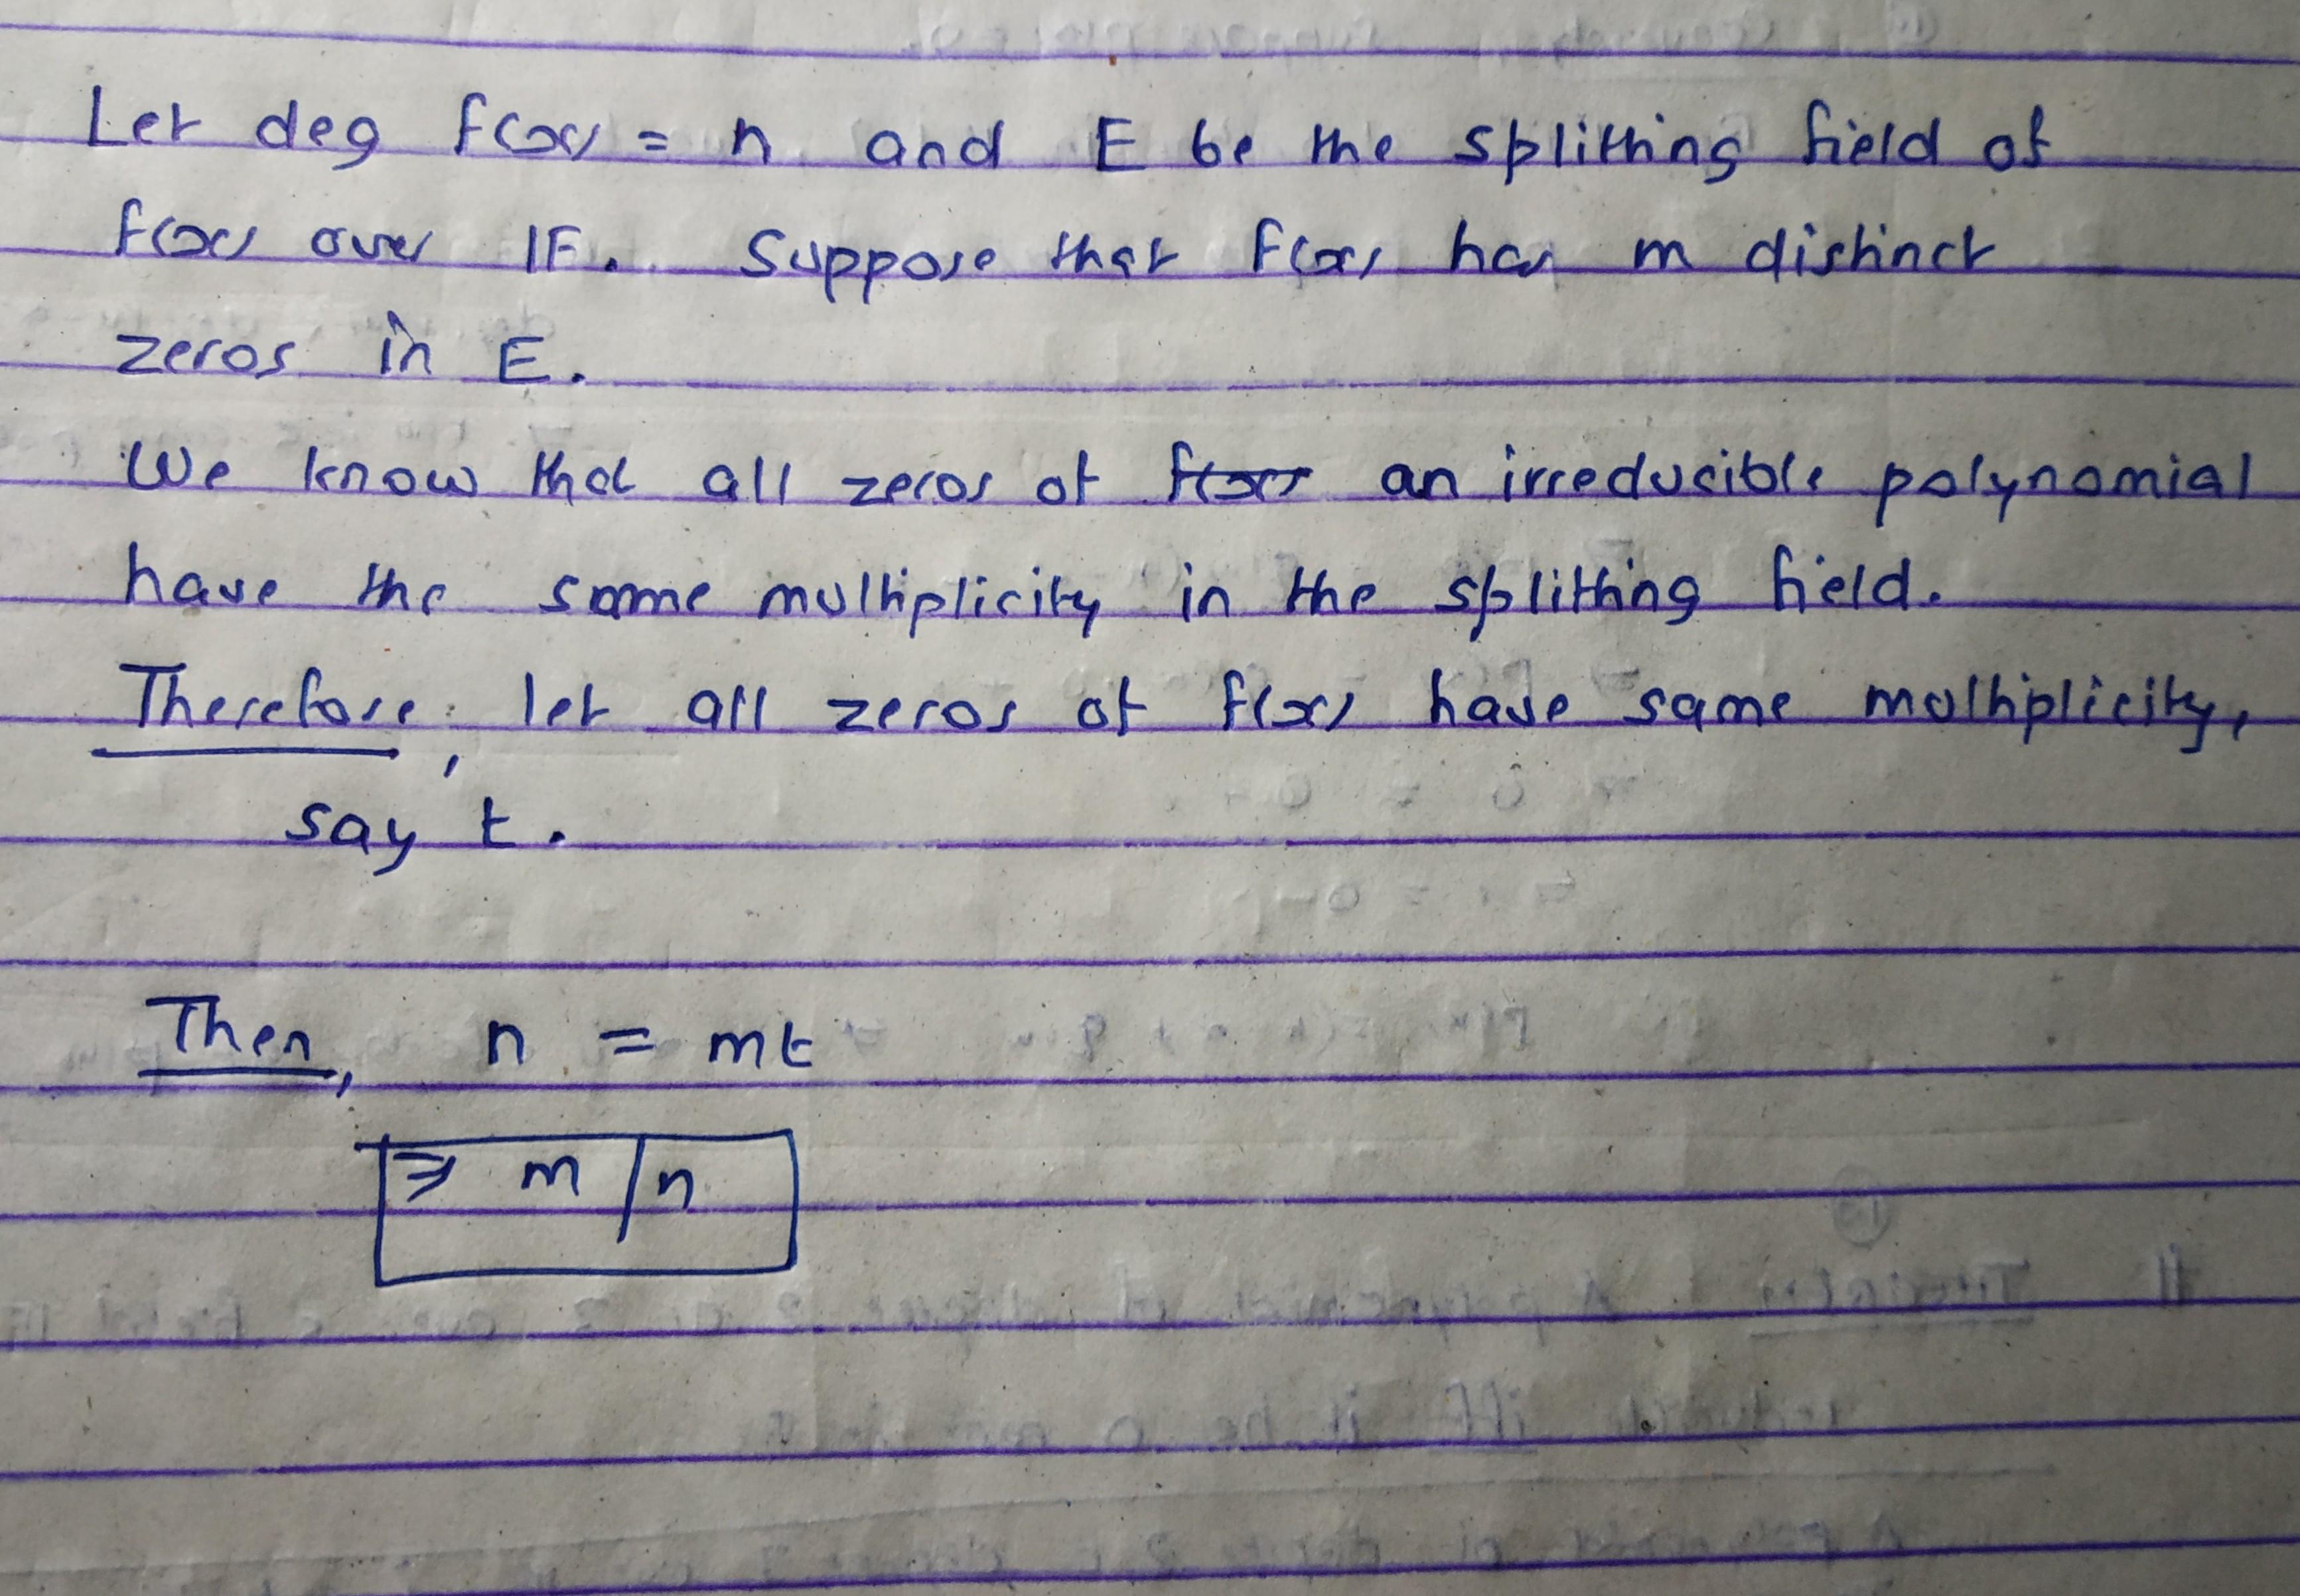 Let deg f(x) = n and E be the splitting field of
f(x) over IF. Suppose that f(x) has m distinct
zeros in E.
We know that all zeros of f(x) an irreducible polynomial
have the same multiplicity in the splitting field.
Therefore, let all zeros of f(x) have same multiplicity,
say t.
Then, n = mt
⇒ m/n